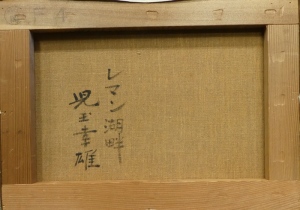 レマン湖畔
児玉幸雄